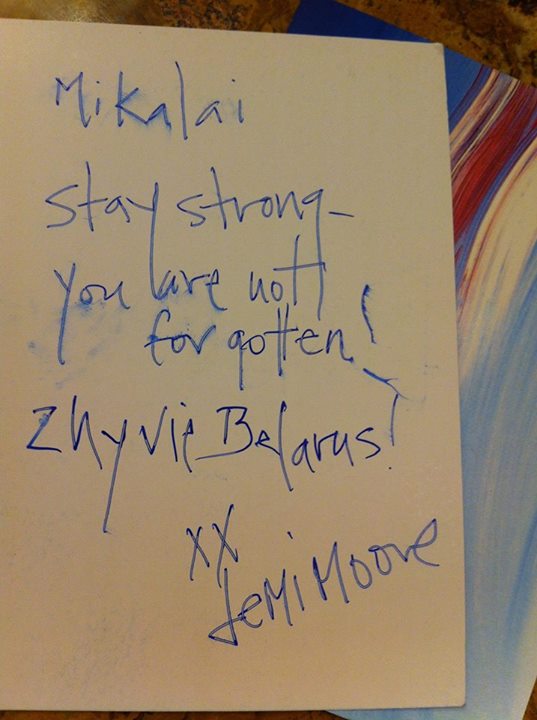 Mikalai
stay strong-
you are not
forgotten!
Zhyvie Belarus!
XX
Jemi Moore